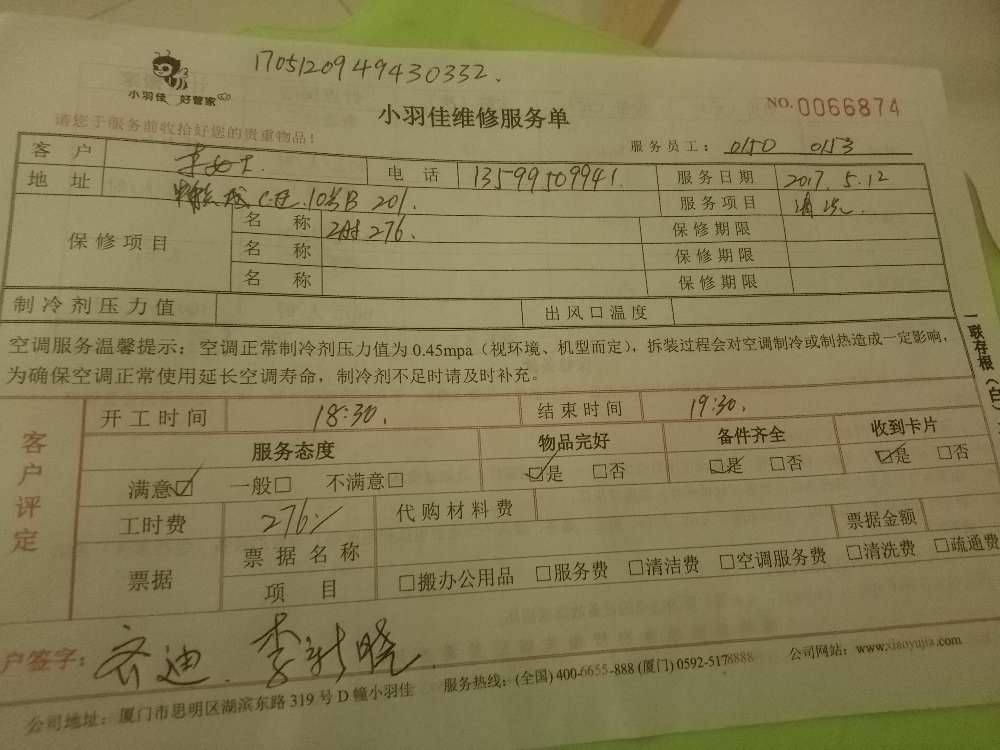 1705120949430332.
小羽佳 好管家
小羽佳维修服务单
NO.0066874
请您于服务前收拾好您的贵重物品!
服务员工: 0150 0153
客户 李女士 电话 13599509941. 服务日期 2017.5.12
地址 C区.10号B 201. 服务项目 清洗.
保修项目 名称 276. 保修期限
名称 保修期限
名称 保修期限
制冷剂压力值 出风口温度
空调服务温馨提示: 空调正常制冷剂压力值为0.45mpa(视环境、机型而定),拆装过程会对空调制冷或制热造成一定影响,
为确保空调正常使用延长空调寿命,制冷剂不足时请及时补充。
一联存根(白)
客户评定
开工时间 18:30. 结束时间 19:30.
服务态度 物品完好 备件齐全 收到卡片
满意☑ 一般□ 不满意□ ☑是 □否 ☑是 □否 ☑是 □否
工时费 276 代购材料费
票据 票据名称 票据金额
项目 □搬办公用品 □服务费 □清洁费 □空调服务费 □清洗费 □疏通费
户签字: 李新晓.
公司地址: 厦门市思明区湖滨东路319号D幢小羽佳 服务热线: (全国) 400-6655-888 (厦门) 0592-5178888 公司网站: www.xiaoyujia.com